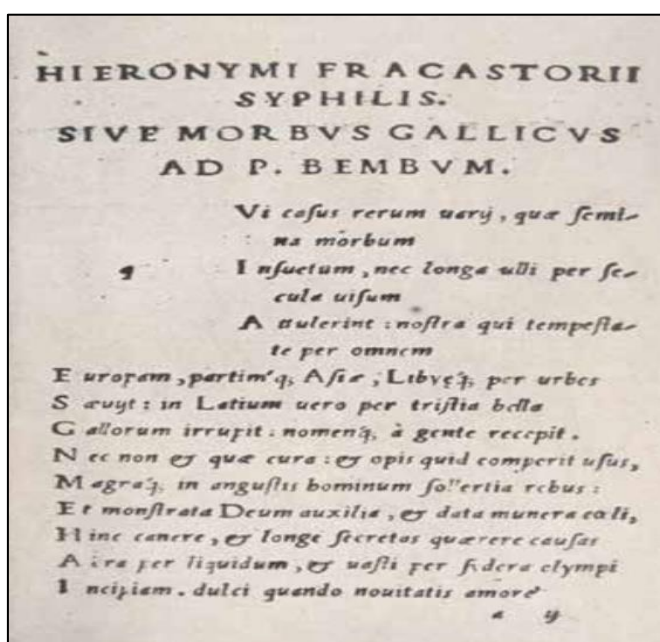 HIERONYMI FRACASTORII
SYPHILIS.
SIVE MORBVS GALLICVS
AD P. BEMBVM.
q Vi casus rerum uarij, quæ semi-
na morbum
Insuetum, nec longa ulli per se-
cula uisum
Attulerint: nostra qui tempesta-
te per omnem
Europam, partimq; Asiæ, Libyęq; per urbes
Sæuijt: in Latium uero per tristia bella
Gallorum irrupit: nomenq; à gente recepit.
Nec non & quæ cura: & opis quid comperit usus,
Magnaq; in angustis hominum sollertia rebus:
Et monstrata Deum auxilia, & data munera cœli,
Hinc canere, & longe secretas quærere causas
Aera per liquidum, & uasti per sidera olympi
Incipiam. dulci quando nouitatis amore
a ij